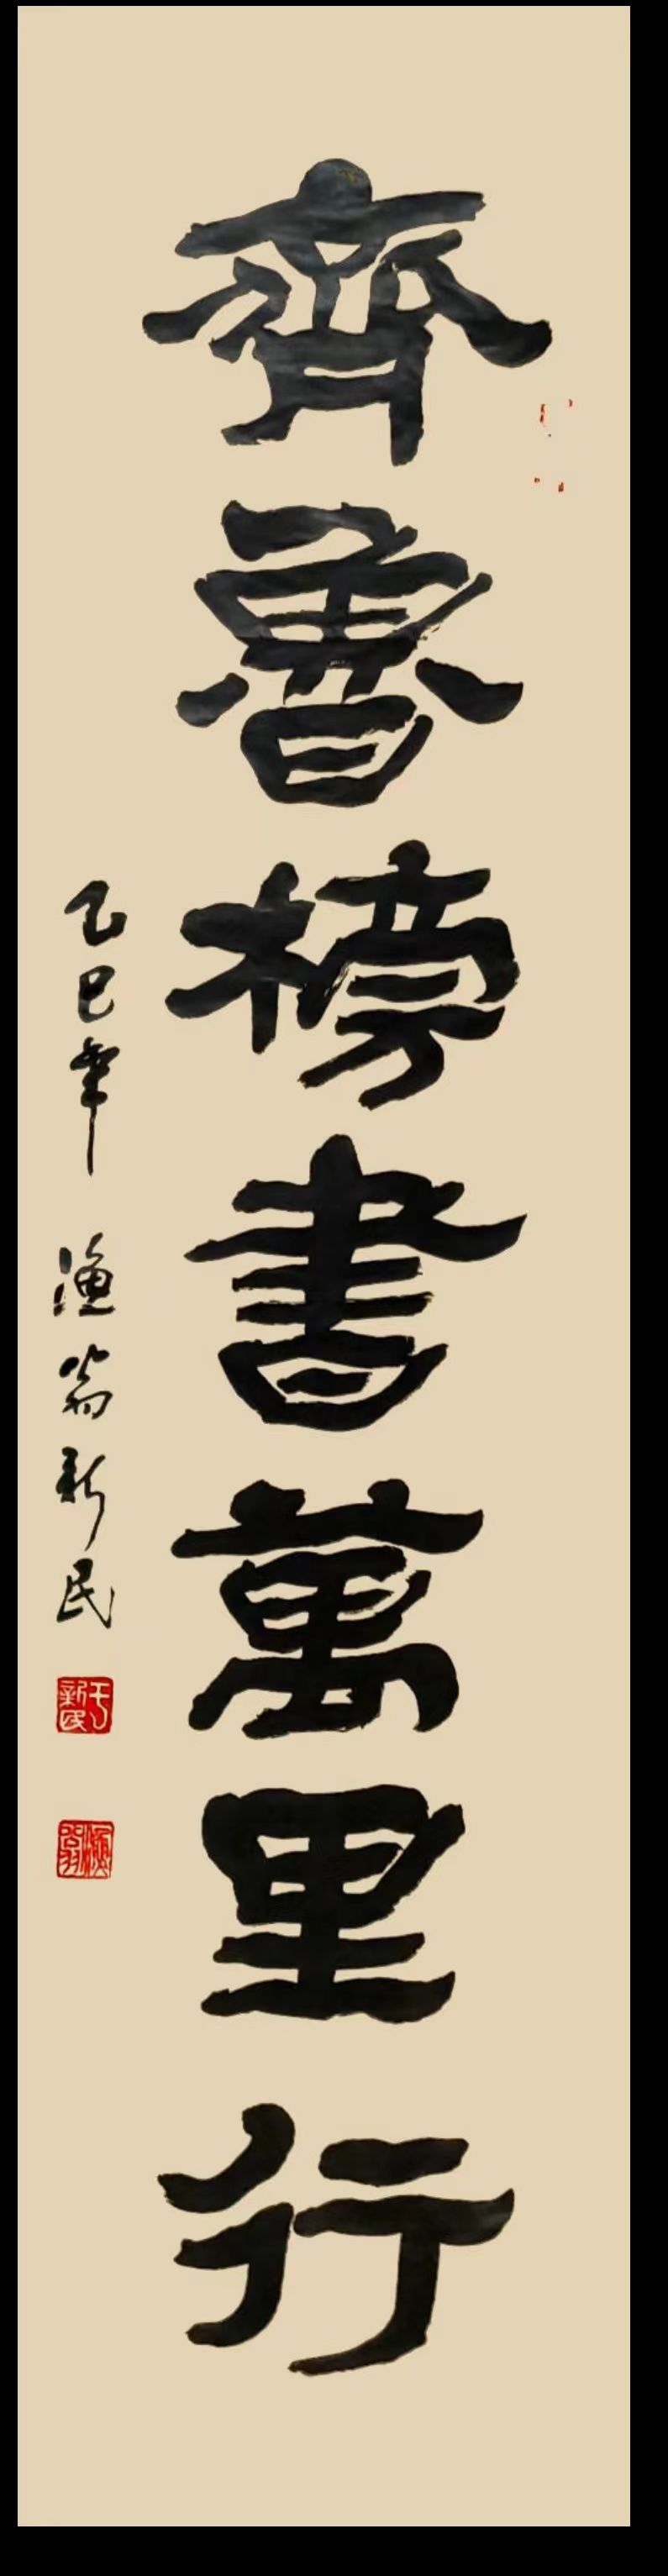 齊魯榜書萬里行
乙巳年 漁翁新民
于新民
漁翁